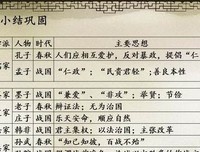 小结巩固
派 人物 时代 主要思想
孔子 春秋 人们应相互爱护，反对暴政，提倡“仁
家 孟子 战国 “仁政”；“民贵君轻”；善良本性
墨子 战国 “兼爱”、“非攻”；举贤；节俭
老子 春秋 辩证法；无为治国
家 庄子 战国 乐天安命，顺应自然
韩非 战国 君主集权；以法治国；主张改革
孙武 春秋 “知己知彼，百战不殆”